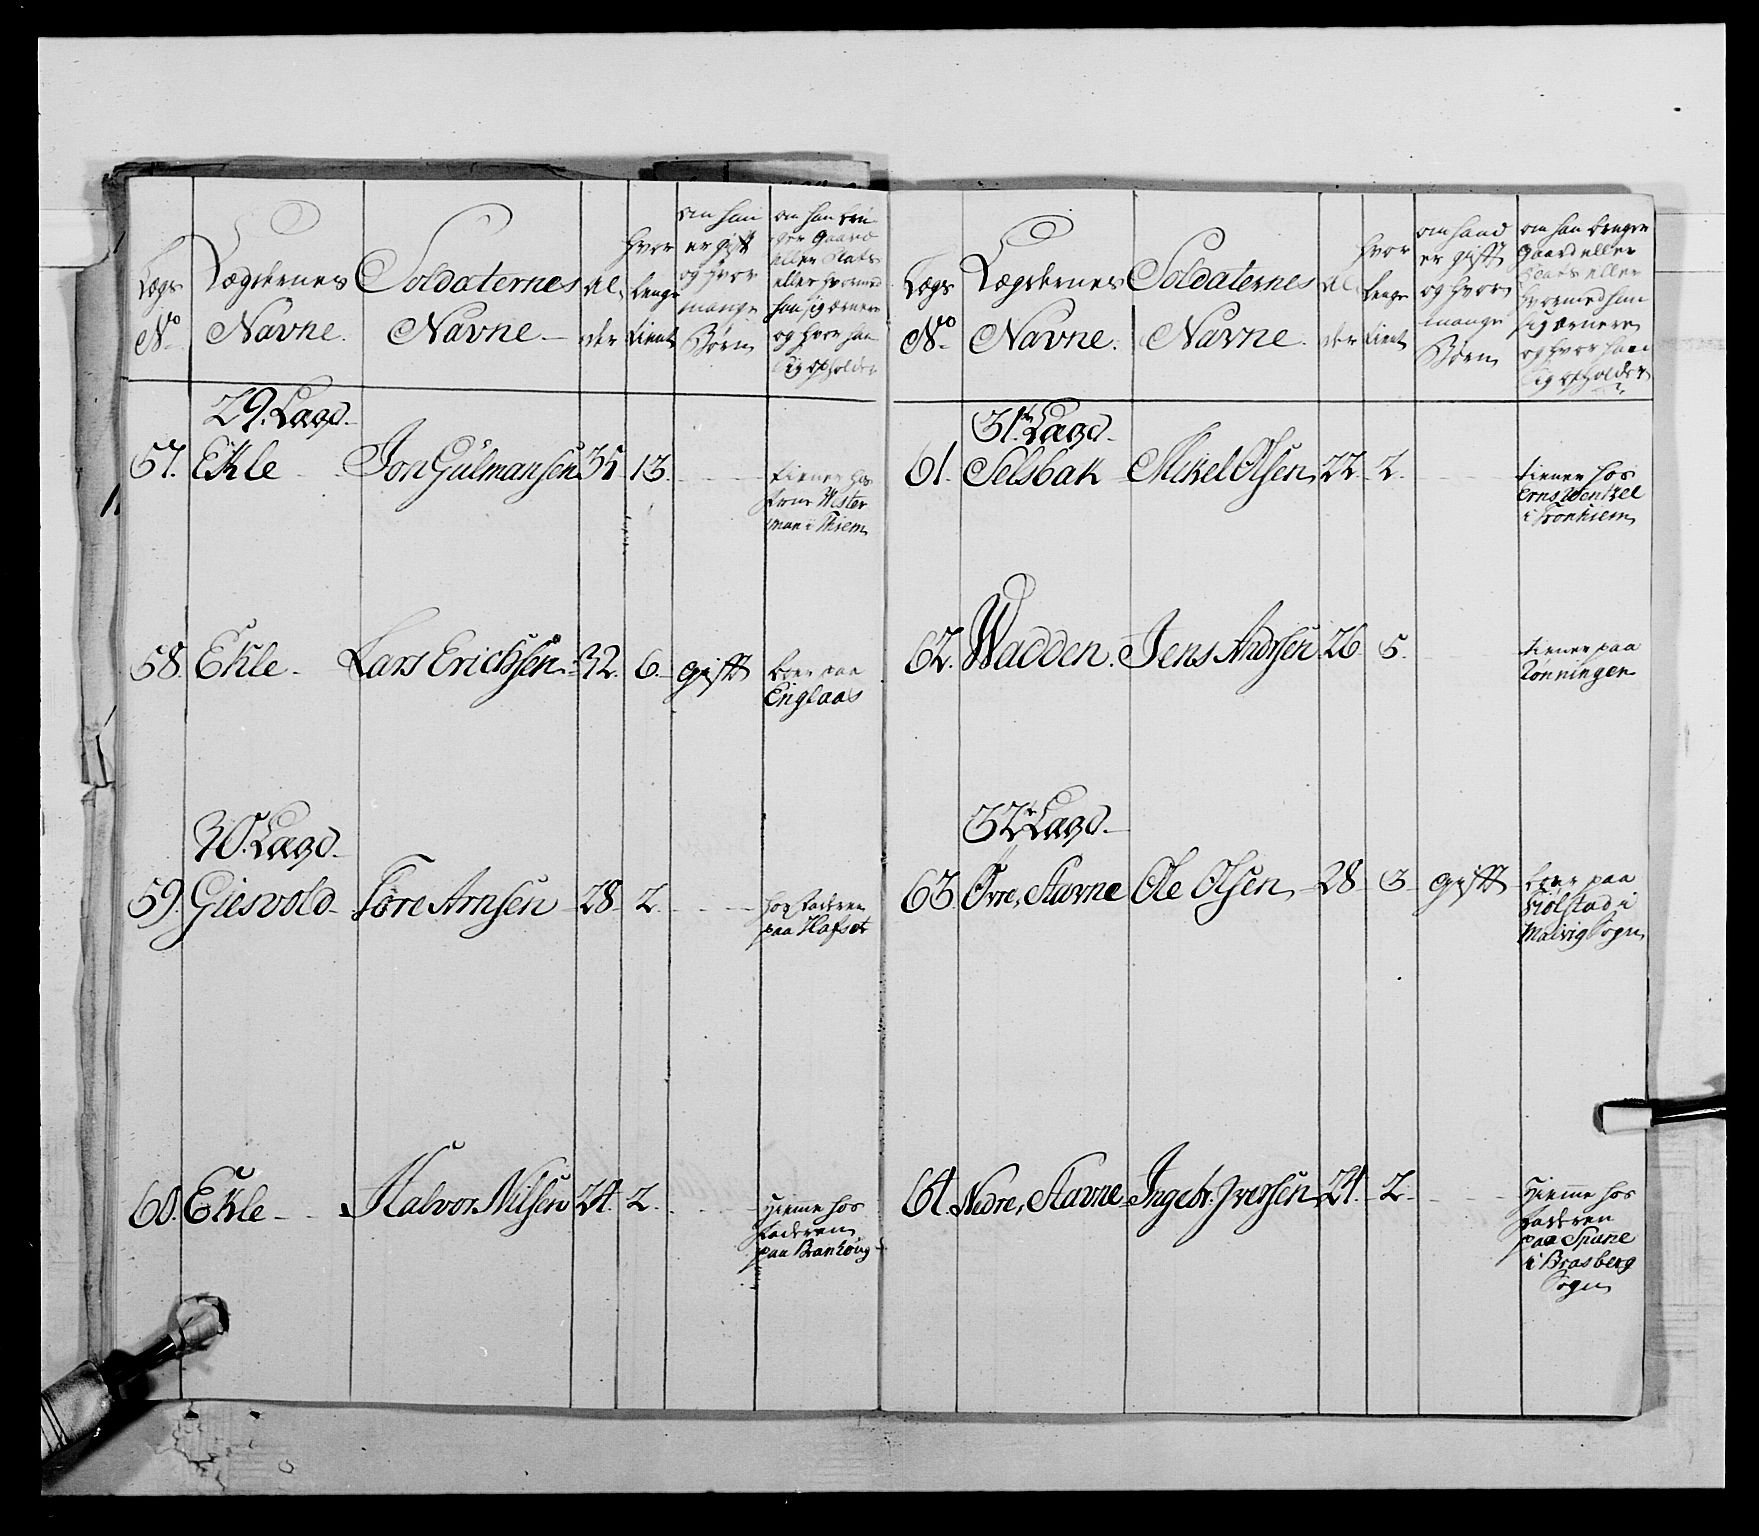 Lægs
No
Lægdernes
Navne.
Soldaternes
Navne.
Al
der
hvor
lenge
tient
om han
er gift
og hvor
mange
Børn
om han bru
ger Gaard
eller Plads
eller hvormed
han sig ærnere
og hvor han
sig opholder
29. Lægd.
57. Ekle Jon Gulmansen 31 13.
tiener hos
Wester
man i Thiem
58. Ekle Lars Erichsen 32. 6. gift
boer paa
Englaas
30. Lægd.
59. Giesvold Tore Arnsen 28. 2.
hos faderen
paa Hafset
60. Ekle Halvor Nilsen 24. 2.
Hiemme hos
faderen
paa Brankoug
Lægs
No
Lægdernes
Navne.
Soldaternes
Navne.
Al
der
hvor
lenge
tient
om hand
er gift
og hvor
mange
Børn
om han bruger
Gaard eller
Plads eller
hvormed han
sig ærnere
og hvor han
sig opholder
31te Lægd.
61. Selsbak Mikel Olsen 22. 2.
tiener hos
Erns Wentzel
i Tronhiem
62. Wadden. Jens Andrsen 26. 5.
tiener paa
Rønningen
32te Lægd.
63. Øvre, Stavne Ole Olsen 28 3. gift
boer paa
Fiølstad i
Malvig Sogn
64. Nedre, Stavne Ingebr. Iversen 24. 2.
Hiemme hos
faderen
paa Spane
i Brasberg
Sogn